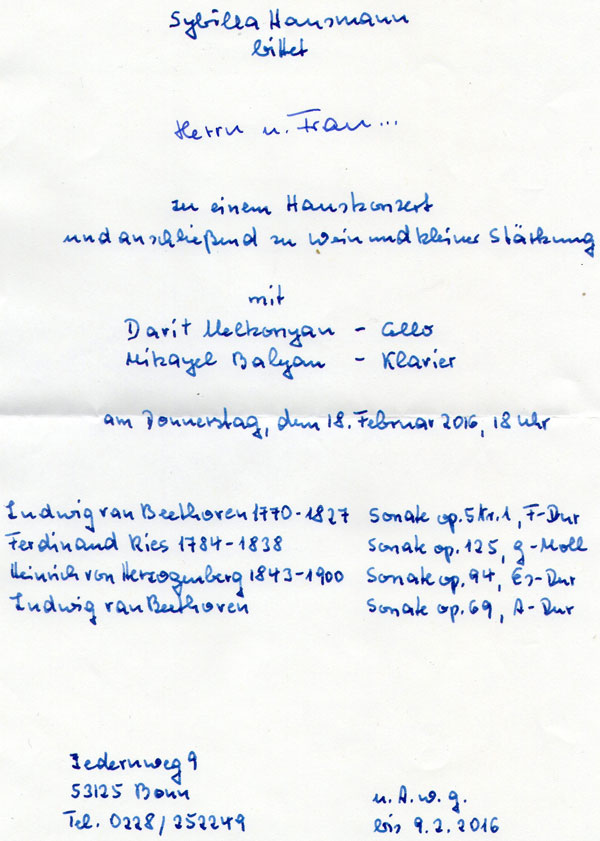 Sybilla Hausmann
bittet
Herrn u. Frau...
zu einem Hauskonzert
und anschließend zu Wein und kleiner Stärkung
mit
Darit Melkonyan - Cello
Mikayel Balyan - Klavier
am Donnerstag, dem 18. Februar 2016, 18 Uhr
Ludwig van Beethoven 1770-1827 Sonate op. 5 Nr. 1, F-Dur
Ferdinand Ries 1784-1838 Sonate op. 125, g-Moll
Heinrich von Herzogenberg 1843-1900 Sonate op. 94, Es-Dur
Ludwig van Beethoven Sonate op. 69, A-Dur
9
53125 Bonn
Tel. 0228/252249
u. A. w. g.
bis 9.2.2016